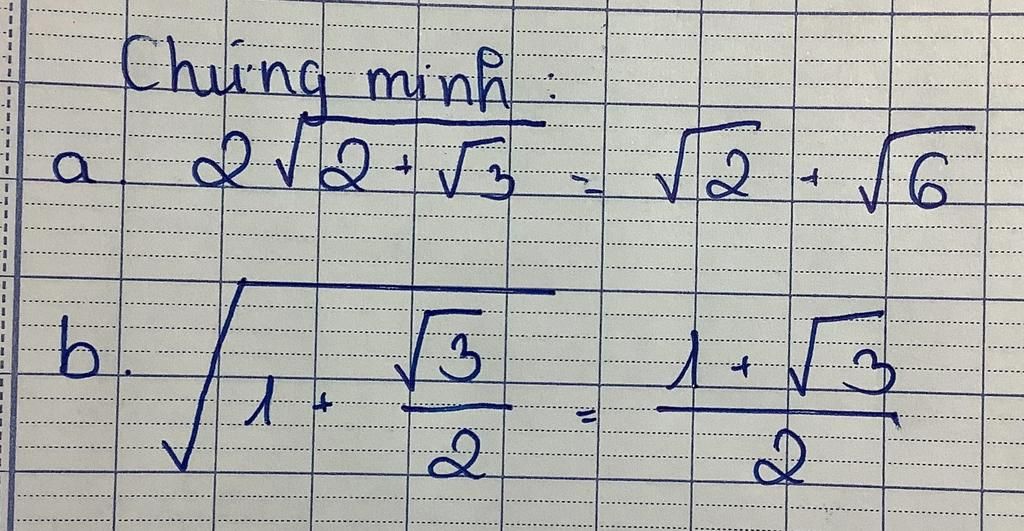 Chứng minh :
a. 2√(2 + √3) = √2 + √6
b. √(1 + √3/2) = (1 + √3)/2